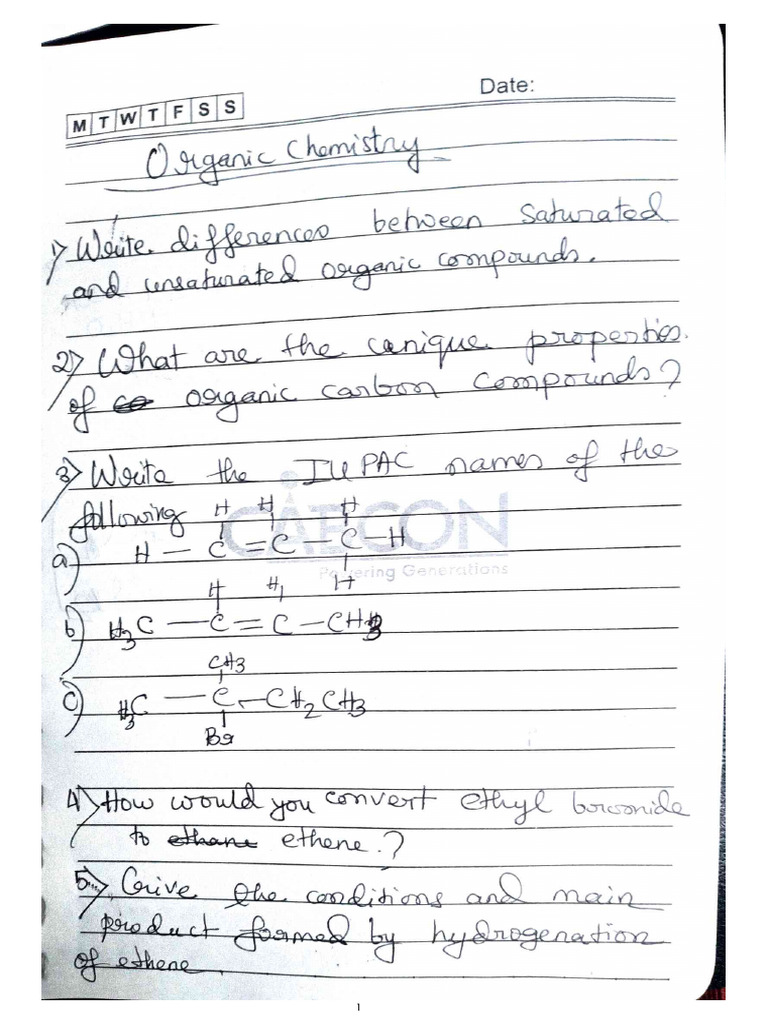 Date:
M T W T F S S
Organic Chemistry
1) Write differences between saturated
and unsaturated organic compounds.
2) What are the unique properties
of organic carbon compounds?
3) Write the IUPAC names of the
following
CAECON
Powering Generations
H H H
a) H — C = C — C — H
H
H H
b) H3C — C = C — CH3
CH3
c) H3C — C — CH2CH3
Br
4) How would you convert ethyl bromide
to ethane ethene.?
5) Give the conditions and main
product formed by hydrogenation
of ethene.
1